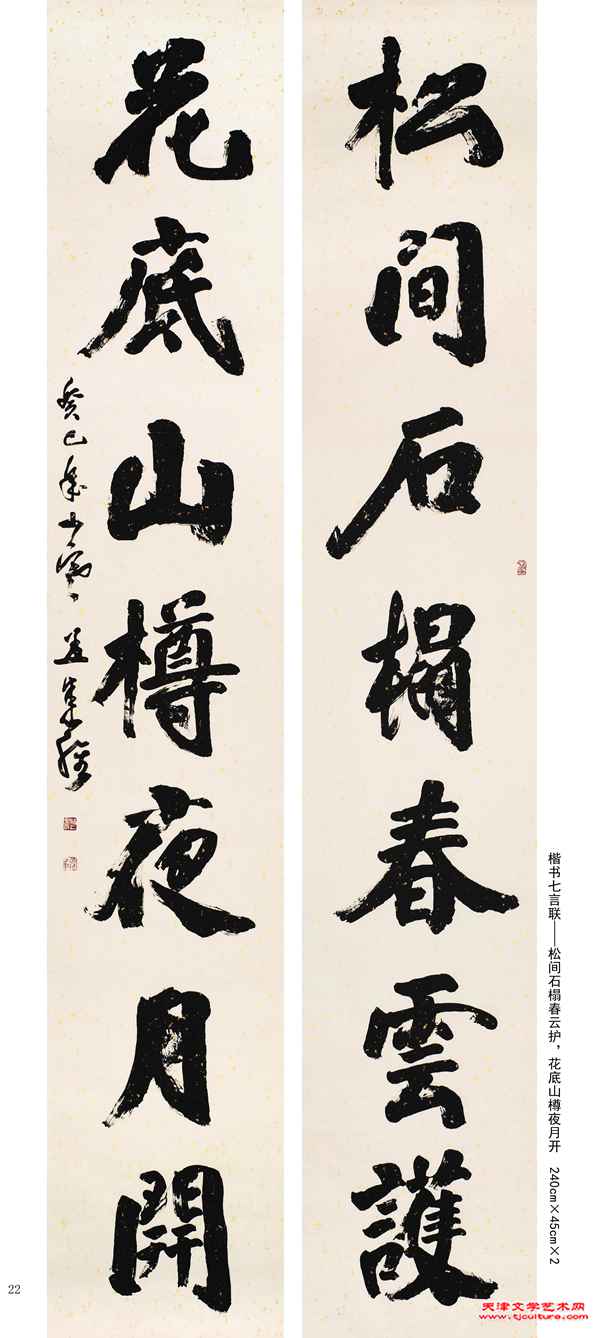 松间石榻春雲護
花底山樽夜月開
癸巳年
楷书七言联——松间石榻春云护，花底山樽夜月开 240cm×45cm×2
22
天津文学艺术网
www.tjculture.com